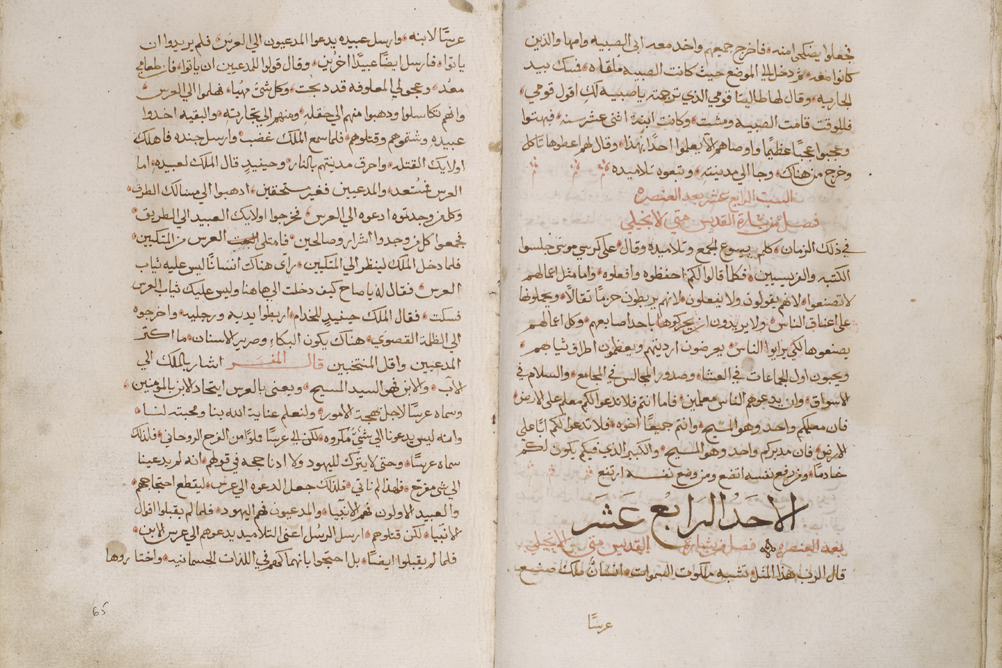 فجعلوا يضحكوا منه فاخرج جميعهم واخد معه ابى الصبيه وامها والذين
كانوا معه ثم دخل الى الموضع حيث كانت الصبيه ملقاه فمسك بيد
الجاريه وقال لها طاليثا قومي الذي ترجمته يا صبيه لكِ اقول قومي
فللوقت قامت الصبيه ومشت وكانت ابنة اثنى عشر سنه فبهتوا
وتعجبوا عجبًا عظيمًا واوصاهم الا يعلموا احدًا بهذا وقال هم اعطوها تاكل
وخرج من هناك وجا الى مدينته وتبعوه تلاميده
السبت الرابع عشر بعد العنصره
فصل من بشارة القديس متى الانجيلي
في ذلك الزمان كلم يسوع الجمع وتلاميده وقال على كرسي موسى جلسوا
الكتبه والفريسيين فكلما قالوا لكم احفظوه وافعلوه واما مثل اعمالهم
لا تصنعوا لانهم يقولون ولا يفعلون لانهم يربطون حزمًا ثقالًا ويحملونها
على اعناق الناس ولا يريدون ان يحركوها باحد اصابعهم وكل اعمالهم
يصنعوها لكي يرايوا الناس يعرضون ارديتهم ويعظمون اطراف ثيابهم
ويحبون اول الجماعات في العشا وصدور المجالس في المجامع والسلام في
الاسواق وان يدعوهم الناس معلمين فاما انتم فلا تدعوا لكم معلم على الارض
فان معلمكم واحد وهو المسيح وانتم جميعًا اخوه فلا تدعوا لكم ابًا على
الارض فان مدبركم واحد وهو المسيح والكبير الذي فيكم يكون لكم
خادمًا ومن رفع نفسه اتضع ومن وضع نفسه ارتفع
الاحد الرابع عشر
بعد العنصره فصل من بشارة القديس متى الانجيلي
قال الرب هذا المثل تشبه ملكوت السموات انسان ملك صنع
عرسًا
عرسًا لابنه وارسل عبيده يدعوا المدعيون الى العرس فلم يريدوا ان
ياتوا فارسل ايضًا عبيدًا اخرين وقال قولوا للمدعيين ان ياتوا فان طعامي
معد وعجولي المعلوفه قد دبحت وكل شي مهيا فهلموا الى العرس
وانهم تكاسلوا ودهبوا منهم الى حقله ومنهم الى تجارته والبقيه اخدوا
عبيده وشتموهم وقتلوهم فلما سمع الملك غضب وارسل جنده فاهلك
اولايك القتله واحرق مدينتهم بالنار وحينيدٍ قال الملك لعبيده اما
العرس مستعد والمدعيين فغير مستحقين ادهبوا الى مسالك الطرق
وكل من وجدتوه ادعوه الى العرس فخرجوا اولايك العبيد الى الطريق
فجمعوا كل من وجدوا اشرار وصالحين فامتلى العرس من المتكين
فلما دخل الملك لينظر الى المتكين راى هناك انسانًا ليس عليه ثياب
العرس فقال له يا صاح كيف دخلت الى هاهنا وليس عليك ثياب العرس
فسكت فقال الملك حينيدٍ للخدام اربطوا يديه ورجليه واخرجوه
الى الظلمة القصوى هناك يكون البكاء وصرير الاسنان ما اكتر
المدعيين واقل المنتخبين قال المفسر اشار بالملك الى
الاب والابن فهو السيد المسيح ويعنى بالعرس ايتحاد الابن بالمومنين
وسماه عرسًا لاجل بهجة الامور ولنعلم عناية الله بنا ومحبته لنا
وانه ليس يدعونا الى شي مكروه لكن الى عرسًا مملوًا من الفرح الروحاني فلذلك
سماه عرسًا وحتى لا يترك لليهود ولا ادنا حجه في قولهم انه لم يدعينا
الى شي مفرح فلهذا لم ناتي فلذلك جعل الدعوه الى عرس ليقطع احتجاجهم
والعبيد الاولون فهم الانبيا والمدعيون فهم اليهود فلما لم يقبلوا اقوال
الانبيا لكن قتلوهم ارسل الرسل اعنى التلاميد يدعوهم الى عرس الابن
فلما لم يقبلوا ايضًا بل احتجوا بانهماكهم في اللذات الجسمانيه واختاروها
65